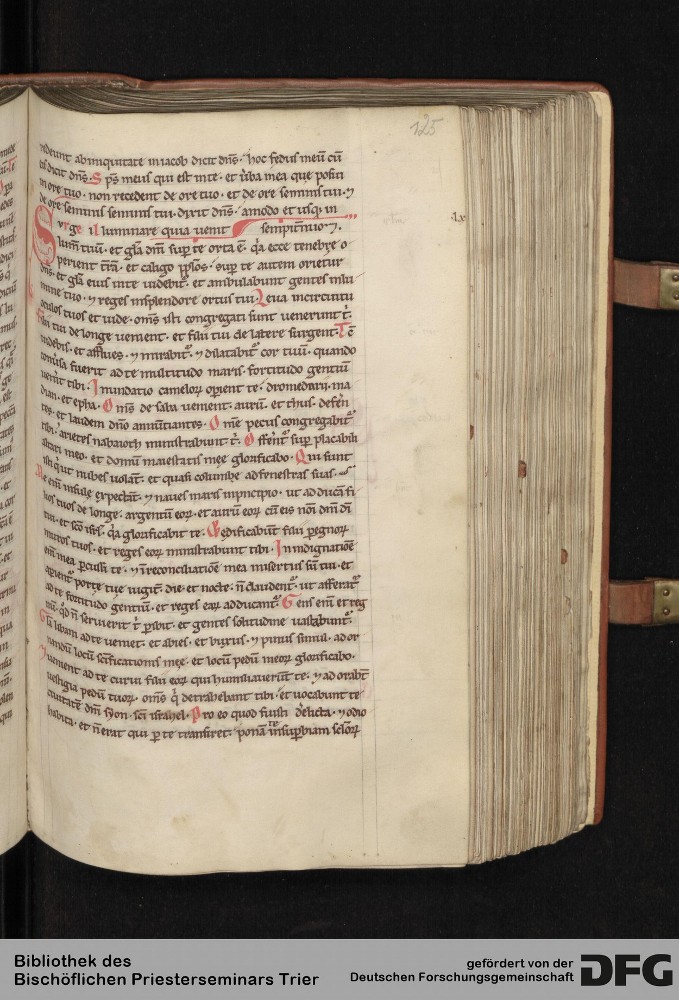 125
redeunt ab iniquitate in iacob dicit dn̄s. hoc fedus meū cū
eis dicit dn̄s. Sp̄s meus qui est in te. et ūba mea que posui
in ore tuo. non recedent de ore tuo. et de ore seminis tui. ⁊
de ore seminis seminis tui. dixit dn̄s. amodo et usq; in
Surge illuminare quia uenit sempit̄nuɔ⁊.
lx
lum̄ tuū. et gła dn̄i sup te orta ē. q̄a ecce tenebre o
perient t̄rā. et caligo pp̄los. sup te autem orietur
dn̄s. et gła eius in te uidebit̄. et ambulabunt gentes in lu
mine tuo. ⁊ reges in splendore ortus tui. Leua in circuitu
oculos tuos et uide. om̄s isti congregati sunt uenerunt t̄.
filii tui de longe uenient. et filii tui de latere surgent. Tc̄
uidebis. et afflues. ⁊ mirabit̄. ⁊ dilatabit̄ cor tuū. quando
conūsa fuerit ad te multitudo maris. fortitudo gentiū
uen̄it tibi. Inundatio cameloꝝ opient te. dromedarii. ma
dian. et epha. Om̄s de saba uenient. aurū. et thus. defēn
tes. et laudem dn̄o annūtiantes. Om̄e pecus congregabit̄
tibi. arietes nabaioth ministrabunt t̄. Offēnt̄ sup placabili
altari meo. et domū maiestatis meę glorificabo. Qui sunt
isti q̄ ut nubes uolant. et quasi columbe ad fenestras suas.
Me enī insule expectāt. ⁊ naues maris in principio. ut adducā fi
lios tuos de longe. argentū eoꝝ. et aurū eoꝝ cū eis noī dn̄i dī
tui. et scō isrł. q̄a glorificabit te. Et edificabūt filii pegrinoꝝ
muros tuos. et reges eoꝝ ministrabunt tibi. In indignatiōe
enī mea percussi te. ⁊ in reconciliatiōe mea misertus sū tui. et
apient̄ porte tue iugit̄. die. et nocte. n̄ claudent̄. ut afferat̄
ad te fortitudo gentiū. et reges eaꝝ adducant̄. Gens enī et reg
nū. qd̄ n̄ seruierit t̄ pibit. et gentes solitudine uastabunt̄.
Gła libani ad te ueniet. et abies. et buxus. ⁊ pinus simul. ad or
nandū locū sc̄ificationis meę. et locū pedū meoꝝ glorificabo.
⁊ uenient ad te curui filii eoꝝ qui humiliauerūt te. ⁊ adorabt̄
uestigia pedū tuoꝝ. om̄s q̄ detrahebant tibi. et uocabunt te
ciuitatē dn̄i syon. sc̄i israhel. Pro eo quod fuisti dēlicta. ⁊ odio
habita. et n̄ erat qui p te transiret. ponā te in supbiam sclōꝝ
Bibliothek des
Bischöflichen Priesterseminars Trier
gefördert von der
Deutschen Forschungsgemeinschaft
DFG